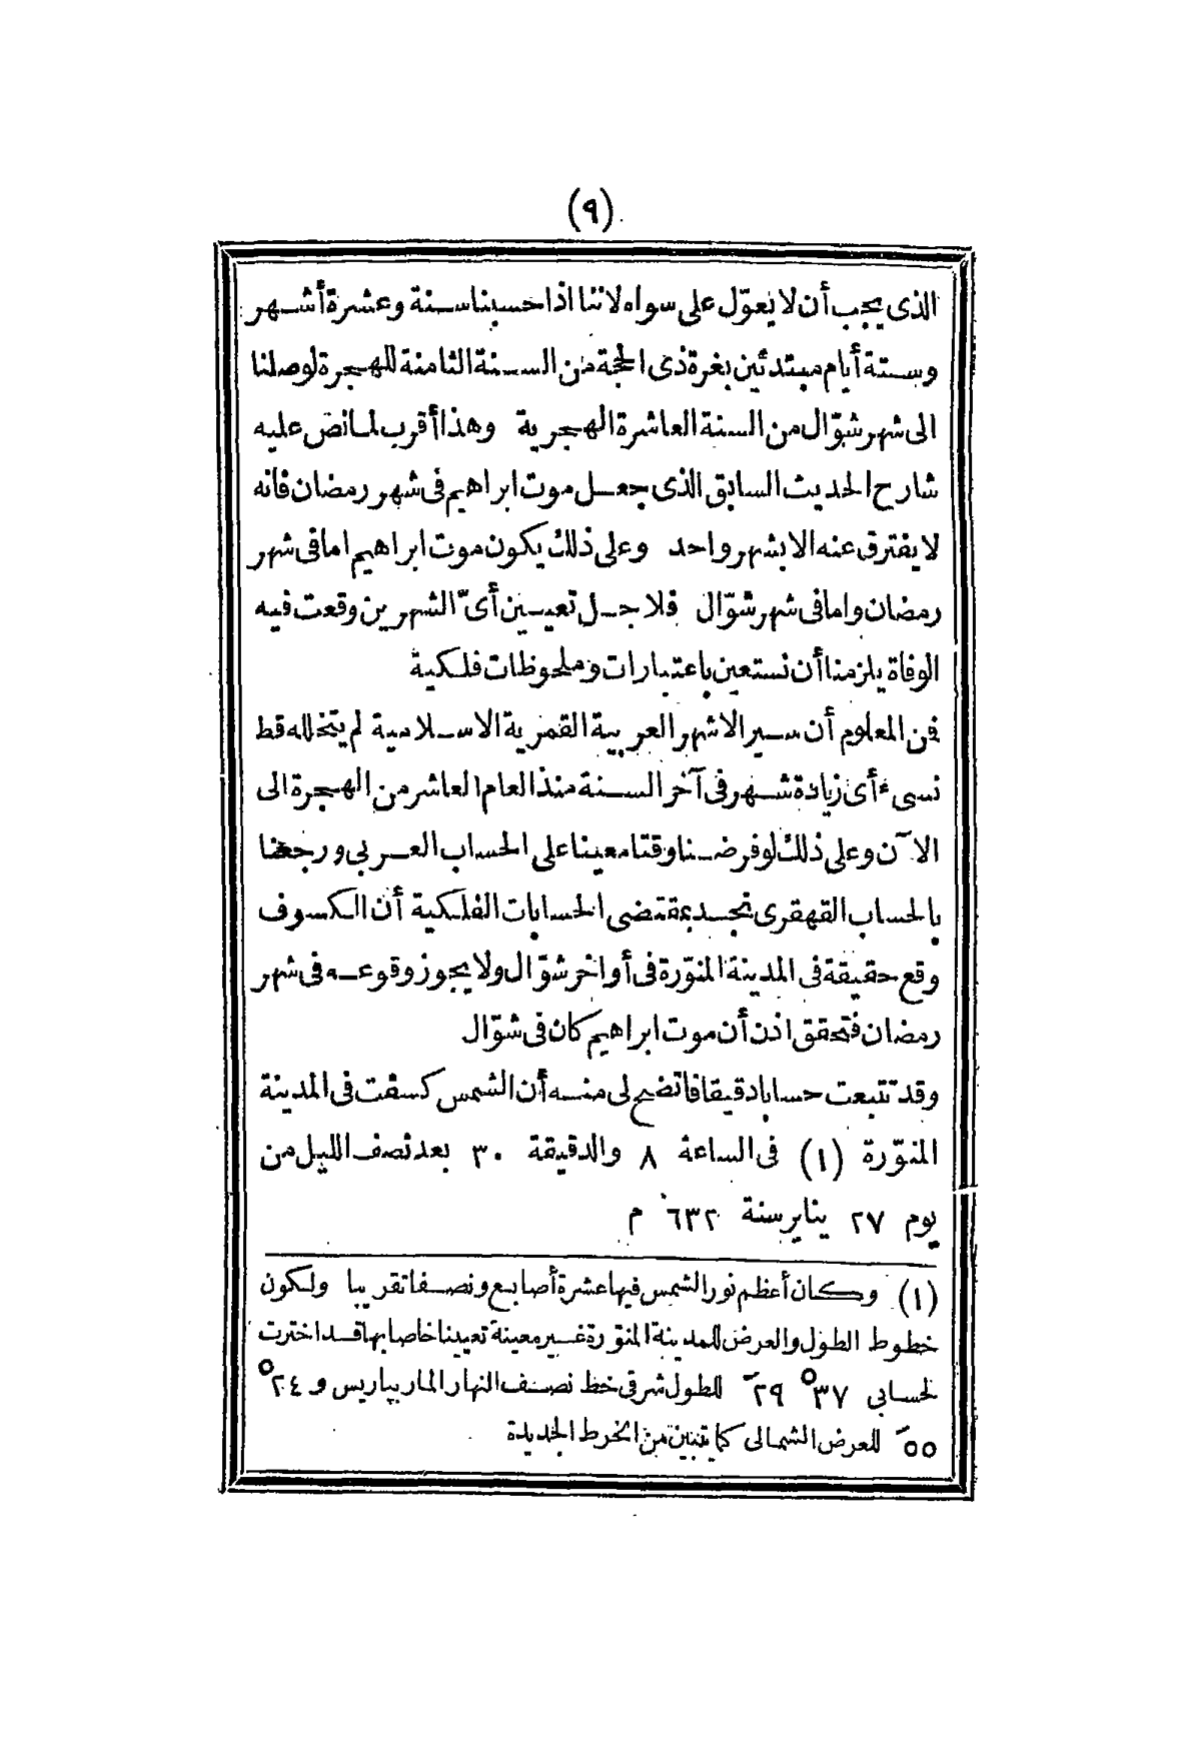 (٩)
الذى يجب أن لا يعوّل على سواه لاننا اذا حسبنا سنة وعشرة أشهر
وستة أيام مبتدئين بغرة ذى الحجة من السنة الثامنة للهجرة لوصلنا
الى شهر شوّال من السنة العاشرة الهجرية وهذا أقرب لما نص عليه
شارح الحديث السابق الذى جعل موت ابراهيم فى شهر رمضان فانه
لا يفترق عنه الا بشهر واحد وعلى ذلك يكون موت ابراهيم اما فى شهر
رمضان واما فى شهر شوّال فلاجل تعيين أىّ الشهرين وقعت فيه
الوفاة يلزمنا أن نستعين باعتبارات وملحوظات فلكية
فمن المعلوم أن سير الاشهر العربية القمرية الاسلامية لم يتخلله قط
نسىء أى زيادة شهر فى آخر السنة منذ العام العاشر من الهجرة الى
الآن وعلى ذلك لو فرضنا وقتا معينا على الحساب العربى ورجعنا
بالحساب القهقرى نجد بمقتضى الحسابات الفلكية أن الكسوف
وقع حقيقة فى المدينة المنوّرة فى أواخر شوّال ولا يجوز وقوعه فى شهر
رمضان فتحقق اذن أن موت ابراهيم كان فى شوّال
وقد تتبعت حسابا دقيقا فاتضح لى منه أن الشمس كسفت فى المدينة
المنوّرة (١) فى الساعة ٨ والدقيقة ٣٠ بعد نصف الليل من
يوم ٢٧ يناير سنة ٦٣٢ م
(١) وكان أعظم نور الشمس فيها عشرة أصابع ونصفا تقريبا ولكون
خطوط الطول والعرض للمدينة المنوّرة غير معينة تعيينا خاصا بها قد اخترت
لحسابى ٣٧° ٢٩َ للطول شرقى خط نصف النهار المار بباريس و ٢٤°
٥٥َ للعرض الشمالى كما يتبين من الخرط الجديدة